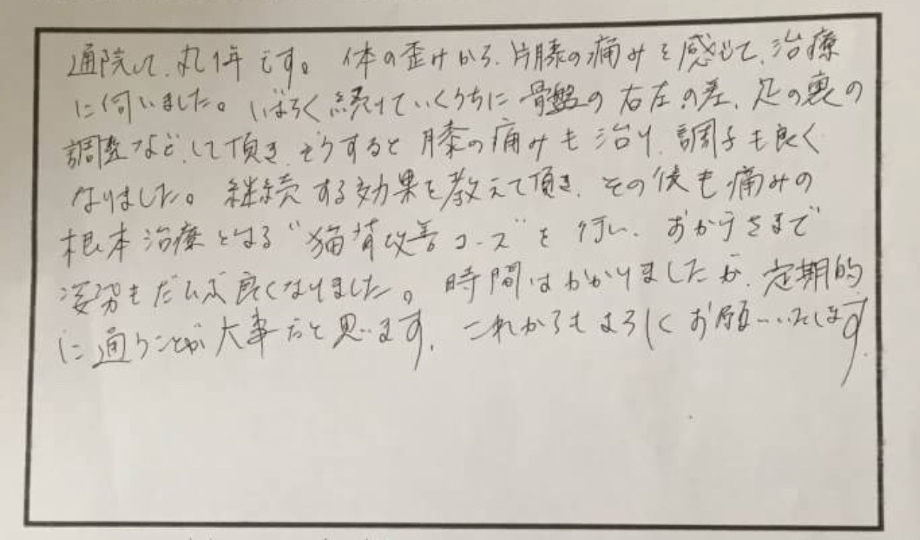 通院して、丸1年です。体の歪みから、片膝の痛みを感じて、治療
に伺いました。しばらく続けていくうちに骨盤の右左の差、足の裏の
調整など、して頂き、そうすると膝の痛みも治り、調子も良く
なりました。継続する効果を教えて頂き、その後も痛みの
根本治療となる"猫背改善コース"を行い、おかげさまで
姿勢もだいぶ良くなりました。時間はかかりましたが、定期的
に通うことが大事だと思います。これからもよろしくお願いいたします